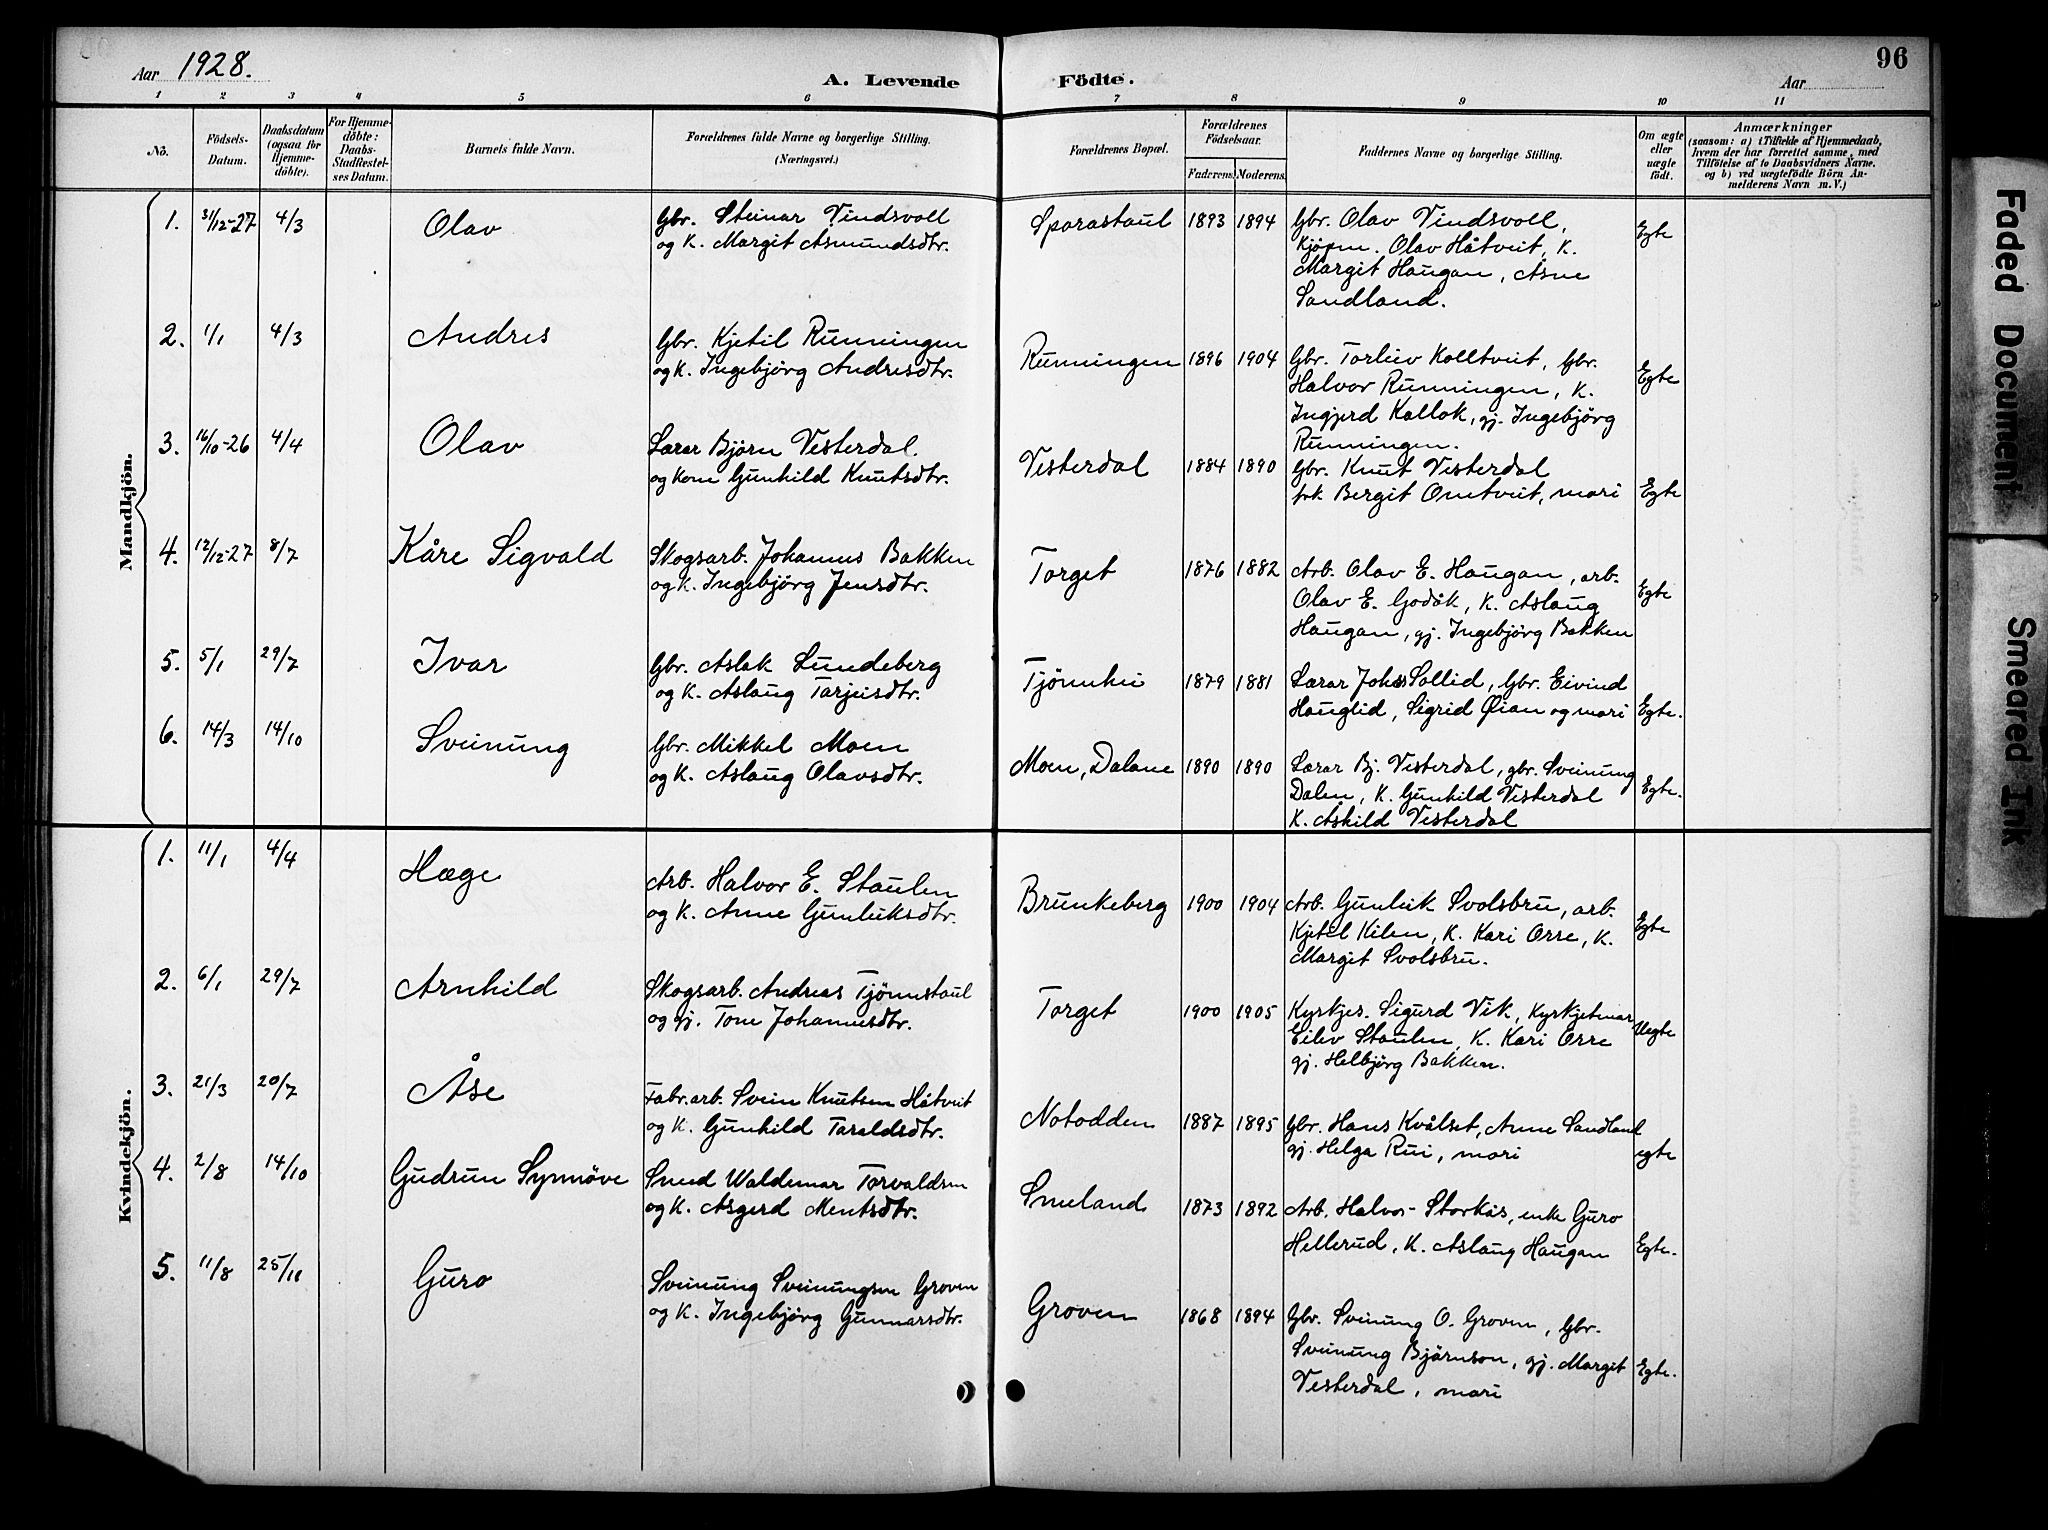 Aar 1928.
A. Levende Födte.
Aar
96
1 2 3 4 5 6 7 8 9 10 11
No.
Födsels-
Datum.
Daabsdatum
(ogsaa for
Hjemme-
döbte).
For Hjemme-
döbte:
Daabs-
Stadfæstel-
ses Datum.
Barnets fulde Navn.
Forældrenes fulde Navne og borgerlige Stilling.
(Næringsvei.)
Forældrenes Bopæl.
Forældrenes
Födselsaar.
Faderens. Moderens.
Faddernes Navne og borgerlige Stilling.
Om ægte
eller
uægte
födt.
Anmærkninger
(saasom: a) i Tilfælde af Hjemmedaab,
hvem der har forrettet samme, med
Tilföielse af to Daabsvidners Navne,
og b) ved uægtefödte Börn An-
melderens Navn m. V.)
Mandkjön.
1. 31/12-27 4/3 Olav
Gbr. Steinar Vindsvoll
og K. Margit Asmundsdtr.
Sparastaul 1893 1894
Gbr. Olav Vindsvoll,
Kjöpm. Olav Håtveit, K.
Margit Haugan, Åsne
Sandland.
Egte
2. 1/1 4/3 Andres
Gbr. Kjetil Runningen
og K. Ingebjörg Andresdtr.
Runningen 1896 1904
Gbr. Torleiv Kolltveit, Gbr.
Halvor Runningen, K.
Ingjerd Kallok, gj. Ingebjörg
Runningen.
Egte
3. 16/10-26 4/4 Olav
Lærar Björn Vesterdal.
og Kone Gunhild Knutsdtr.
Vesterdal 1884 1890
Gbr. Knut Vesterdal
frk. Bergit Omtveit, mori
Egte
4. 12/12-27 8/7 Kåre Sigvald
Skogsarb. Johannes Bakken
og K. Ingebjörg Jensdtr.
Torget 1876 1882
Arb. Olav E. Haugan, arb.
Olav E. Godåk, K. Aslaug
Haugan, gj. Ingebjörg Bakken
Egte
5. 5/1 29/7 Ivar
Gbr. Aslak Lundeberg
og K. Aslaug Tarjeisdtr.
Tjönnhei 1879 1881
Lærar Johs Sollid, Gbr. Eivind
Hauglid, Sigrid Øian og mori
Egte.
6. 14/3 14/10 Sveinung
Gbr. Mikkel Moen
og K. Aslaug Olavsdtr.
Moen, Dalane 1890 1890
Lærar Bj. Vesterdal, gbr. Sveinung
Dalen, K. Gunhild Vesterdal
K. Åshild Vesterdal
Egte.
Kvindekjön.
1. 11/1 4/4 Hæge
Arb. Halvor E. Staulen
og K. Anne Gunleiksdtr.
Brunkeberg 1900 1904
Arb. Gunleik Svolsbru, arb.
Kjetil Kilen, K. Kari Orre, K.
Margit Svolsbru.
Egte
2. 6/1 29/7 Arnhild
Skogsarb. Andreas Tjönnstaul
og gj. Tone Johannesdtr.
Torget 1900 1905
Kyrkjes. Sigurd Vik, Kyrkjetenar
Eilev Staulen, K. Kari Orre
gj. Helbjörg Bakken.
Uegte
3. 21/3 20/7 Åse
Fabr.arb. Svein Knutsen Håtveit
og K. Gunhild Taraldsdtr.
Notodden 1887 1895
Gbr. Hans Kvålset, Anne Sandland
gj. Helga Rui, mori
egte
4. 2/8 14/10 Gudrun Synnöve
Smed Waldemar Torvaldsen
og K. Asgerd Mentsdtr.
Smeland 1873 1892
Arb. Halvor Storkås, enke Guro
Hellerud, K. Aslaug Haugan
Egte.
5. 11/8 25/11 Guro
Sveinung Sveinungsen Groven
og K. Ingebjörg Gunnarsdtr.
Groven 1868 1894
Gbr. Sveinung O. Groven, Gbr.
Sveinung Björnson, gj. Margit
Vesterdal, mori
Egte.
Faded Document
Smeared Ink